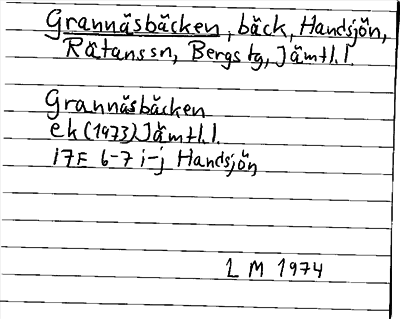 Grannäsbäcken, bäck, Handsjön,
Rätanssn, Bergs tg, Jämtl.l.
Grannäsbäcken
ek (1973) Jämtl.l.
17F 6-7 i-j Handsjön
L M 1974